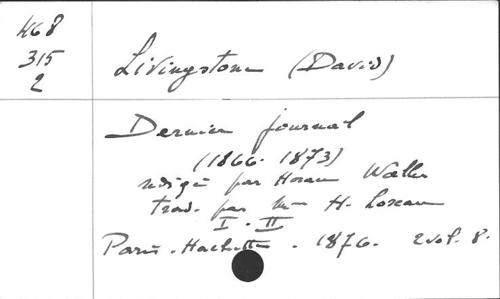 K68
315
2
Livingstone (David)
Dernier journal
(1866-1873)
rédigé par Horace Waller
trad. par Mme H. Loreau
I - II
Paris. Hachette. 1876. 2 vol. 8.